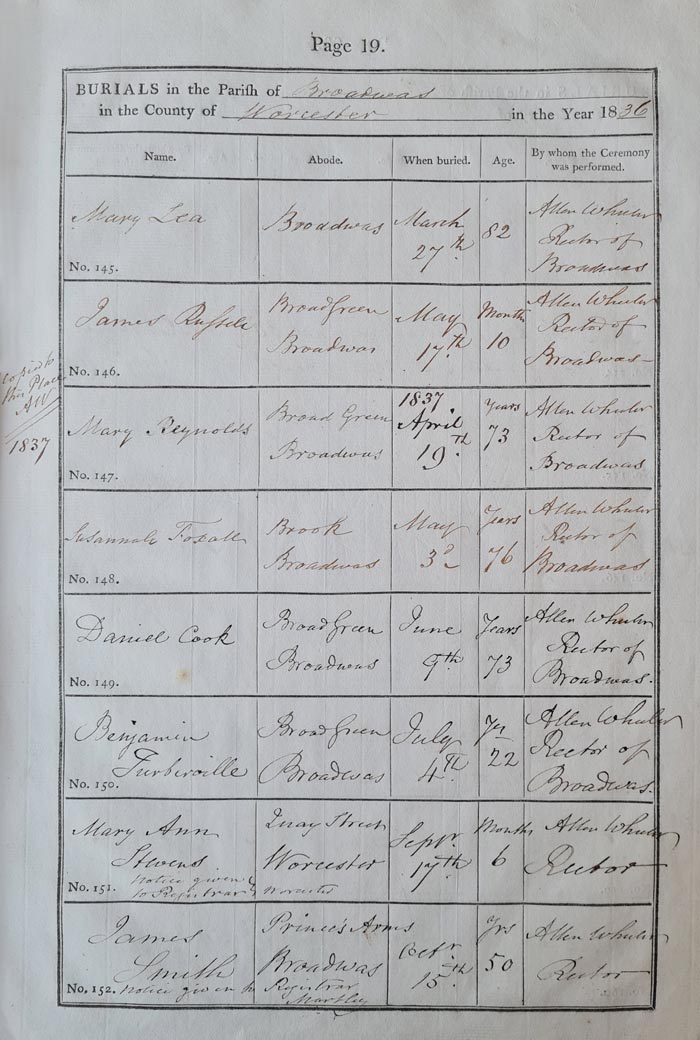 Page 19.
BURIALS in the Parish of Broadwas
in the County of Worcester in the Year 1836
Name. Abode. When buried. Age. By whom the Ceremony was performed.
Mary Lea
No. 145.
Broadwas
March
27th
82
Allen Wheeler
Rector of
Broadwas
James Russell
No. 146.
Broad Green
Broadwas
May
17th
Months
10
Allen Wheeler
Rector of
Broadwas
Copied to
this Place
AW
1837
Mary Reynolds
No. 147.
Broad Green
Broadwas
1837
April
19th
Years
73
Allen Wheeler
Rector of
Broadwas
Susannah Foxall
No. 148.
Brook
Broadwas
May
3d
Years
76
Allen Wheeler
Rector of
Broadwas
Daniel Cook
No. 149.
Broad Green
Broadwas
June
9th
Years
73
Allen Wheeler
Rector of
Broadwas.
Benjamin
Turberville
No. 150.
Broad Green
Broadwas
July
4th
Yrs
22
Allen Wheeler
Rector of
Broadwas.
Mary Ann
Stevens
notice given
No. 151. to Registrar
Quay Street
Worcester
Worcester
Septr.
17th
Months
6
Allen Wheeler
Rector
James
Smith
No. 152. notice given to
Prince's Arms
Broadwas
Registrar
Martley
Octr
15th
Yrs
50
Allen Wheeler
Rector